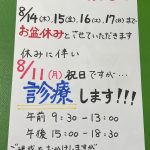 8/14(木).15(金).16(土).17(日)まで
お盆休みとさせていただきます
休みに伴い
8/11(月)祝日ですが…
診療します!!!
午前 9:30-13:00
午後 15:00-18:30